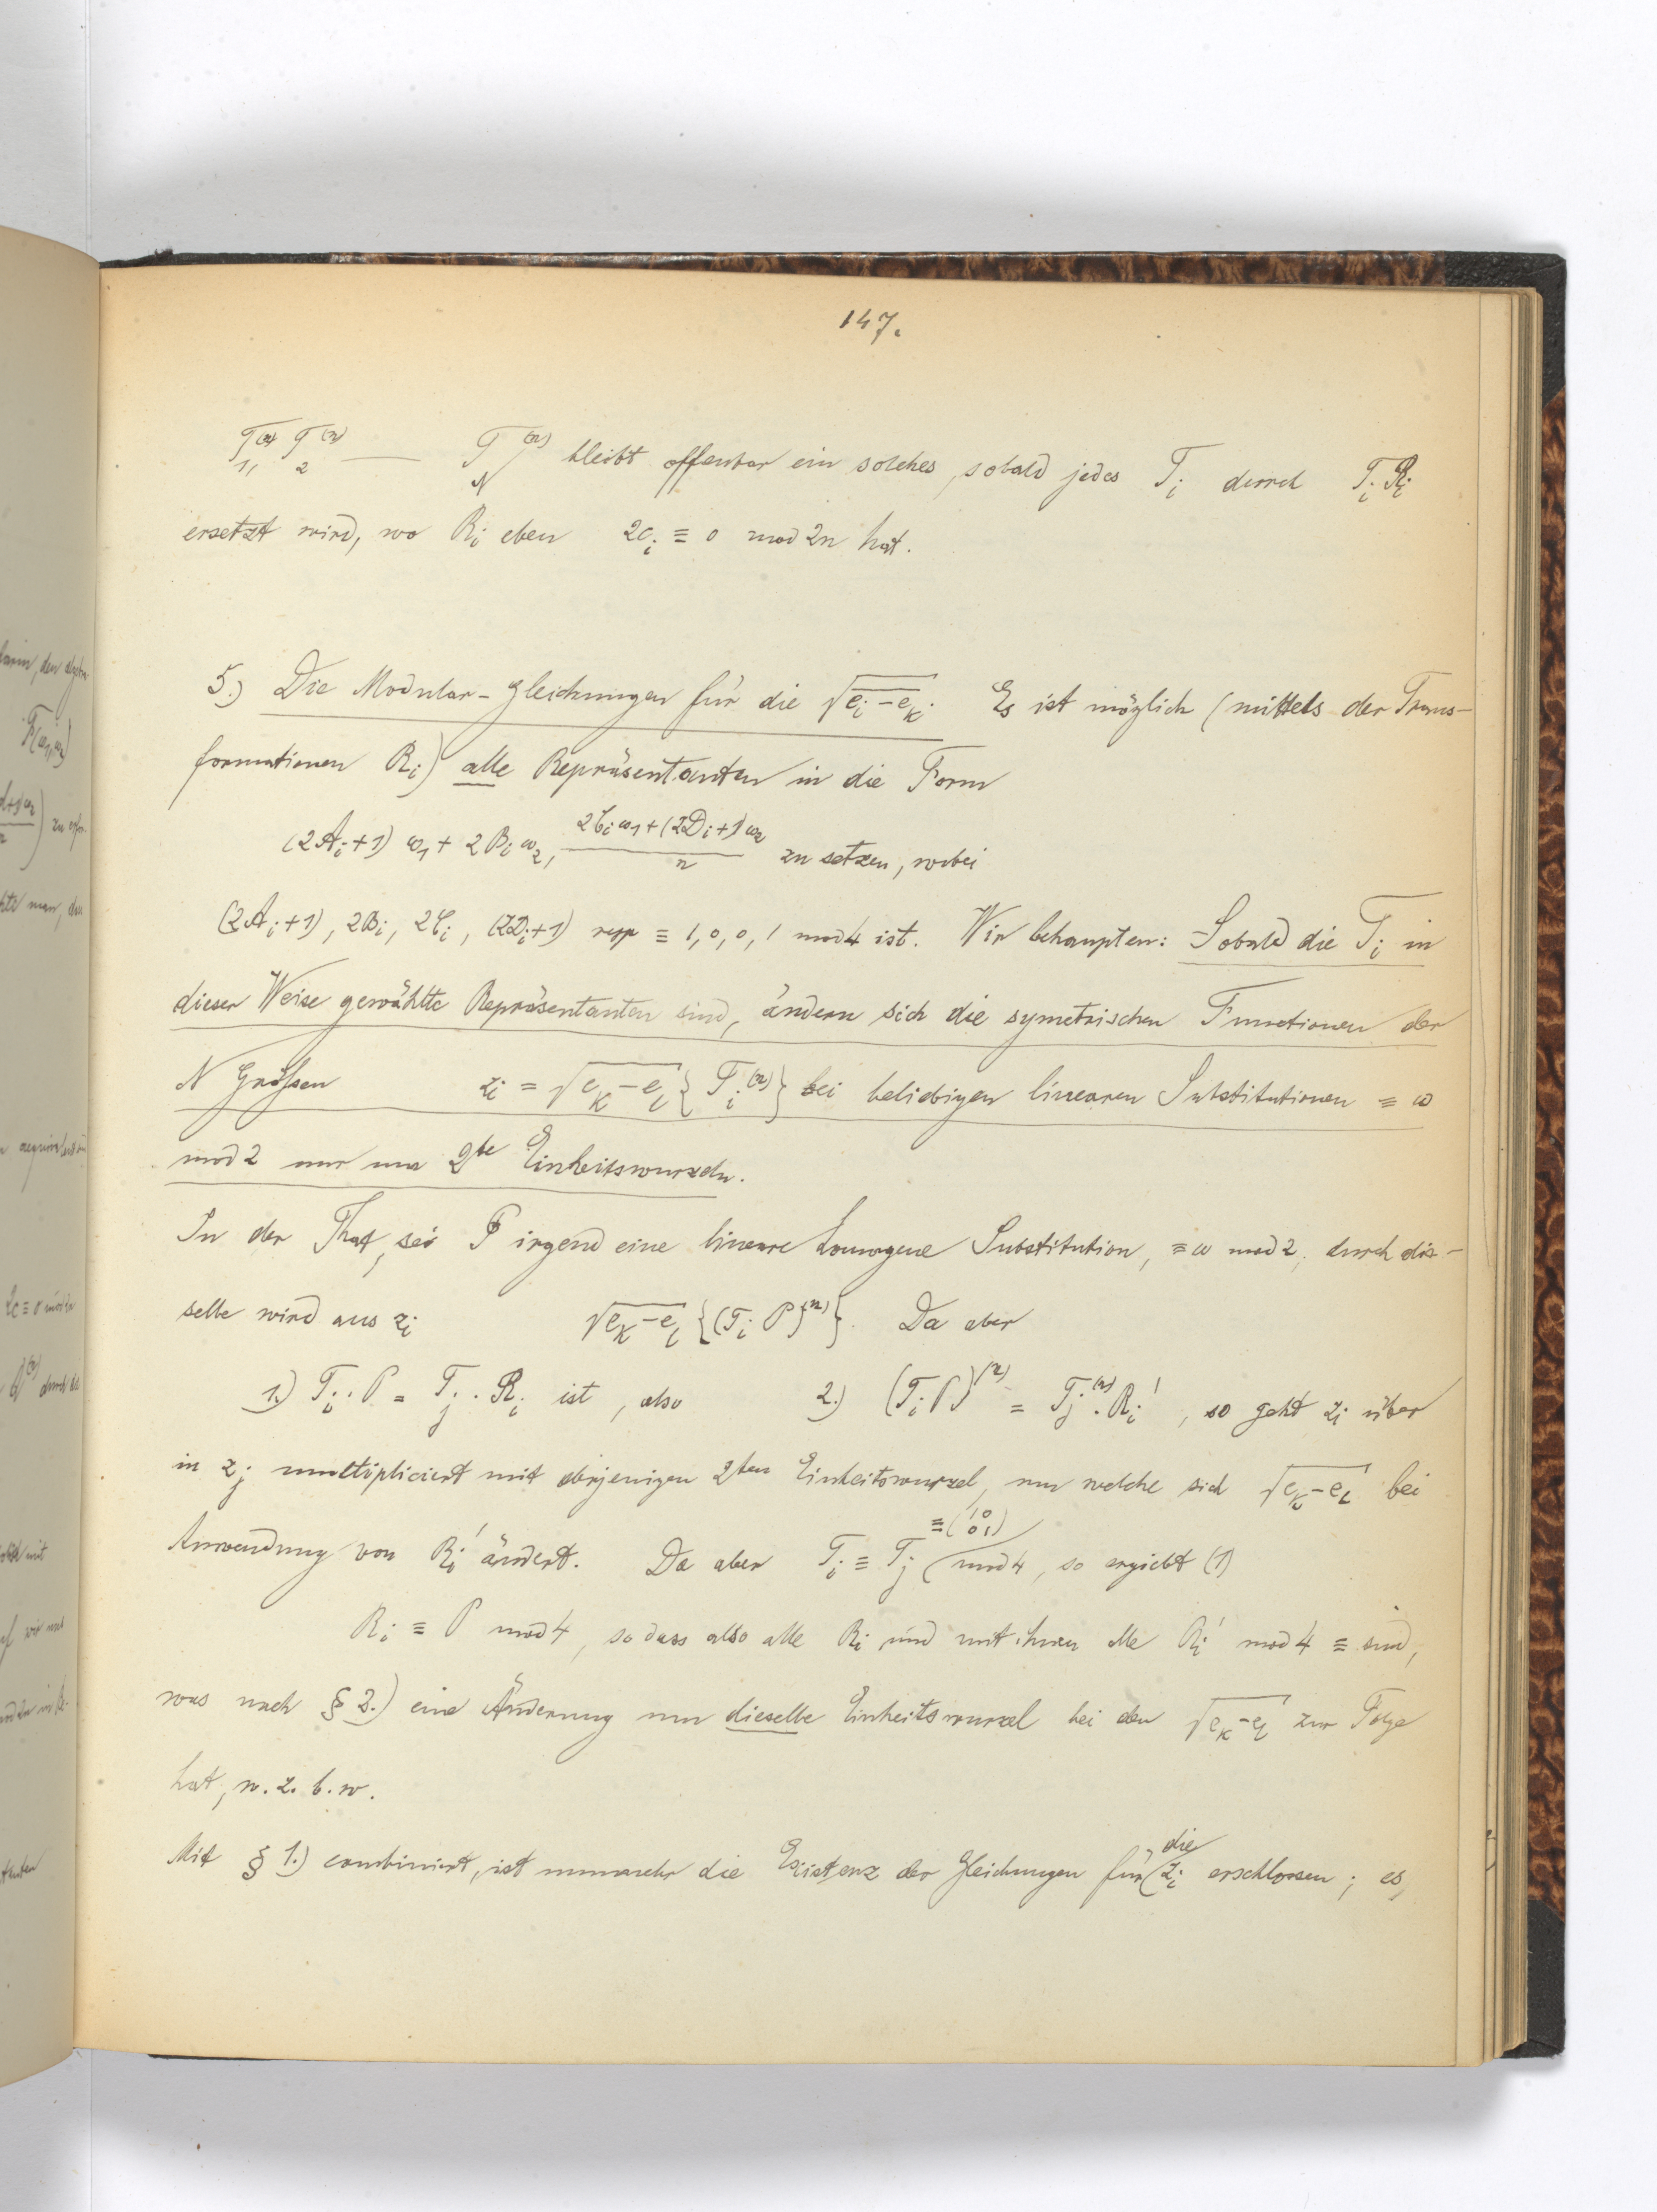 147.
T₁,⁽ⁿ⁾ T₂⁽ⁿ⁾ — T_N⁽ⁿ⁾ bleibt offenbar ein solches, sobald jedes T_i durch T_i R_i
ersetzt wird, wo R_i eben 2c_i ≡ 0 mod 2n hat.
5.) Die Modular-Gleichungen für die √(e_i − e_k). Es ist möglich (mittels der Trans-
formationen R_i) alle Repräsentanten in die Form
(2A_i+1) ω₁ + 2B_i ω₂, (2C_i ω₁ + (2D_i+1) ω₂)/n zu setzen, wobei
(2A_i+1), 2B_i, 2C_i, (2D_i+1) resp ≡ 1, 0, 0, 1 mod 4 ist. Wir behaupten: Sobald die T_i in
dieser Weise gewählte Repräsentanten sind, ändern sich die symetrischen Functionen der
N Größen z_i = √(e_k − e_l) {T_i⁽ⁿ⁾} bei beliebigen linearen Substitutionen ≡ ω
mod 2 nur um 2te Einheitswurzeln.
In der That, sei P irgend eine lineare homogene Substitution, ≡ ω mod 2, durch die-
selbe wird aus z_i √(e_k − e_l) {(T_i P)⁽ⁿ⁾}. Da aber
1.) T_i · P = T_j · R_i ist, also 2.) (T_i P)⁽ⁿ⁾ = T_j⁽ⁿ⁾ · R_i′, so geht z_i über
in z_j multipliciert mit derjenigen 2ten Einheitswurzel, um welche sich √(e_k − e_l) bei
Anwendung von R_i′ ändert. Da aber T_i ≡ T_j ≡ (1 0 0 1) mod 4, so ergiebt (1)
R_i ≡ P mod 4, sodass also alle R_i und mit ihnen alle R_i′ mod 4 ≡ sind,
was nach § 2.) eine Änderung um dieselbe Einheitswurzel bei den √(e_k − e_l) zur Folge
hat, w. z. b. w.
Mit § 1.) combiniert, ist nunmehr die Existenz der Gleichungen für die z_i erschlossen; es,